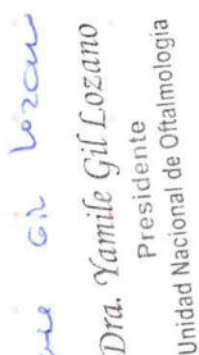 Gil Lozano
Dra. Yamile Gil Lozano
Presidente
Unidad Nacional de Oftalmología